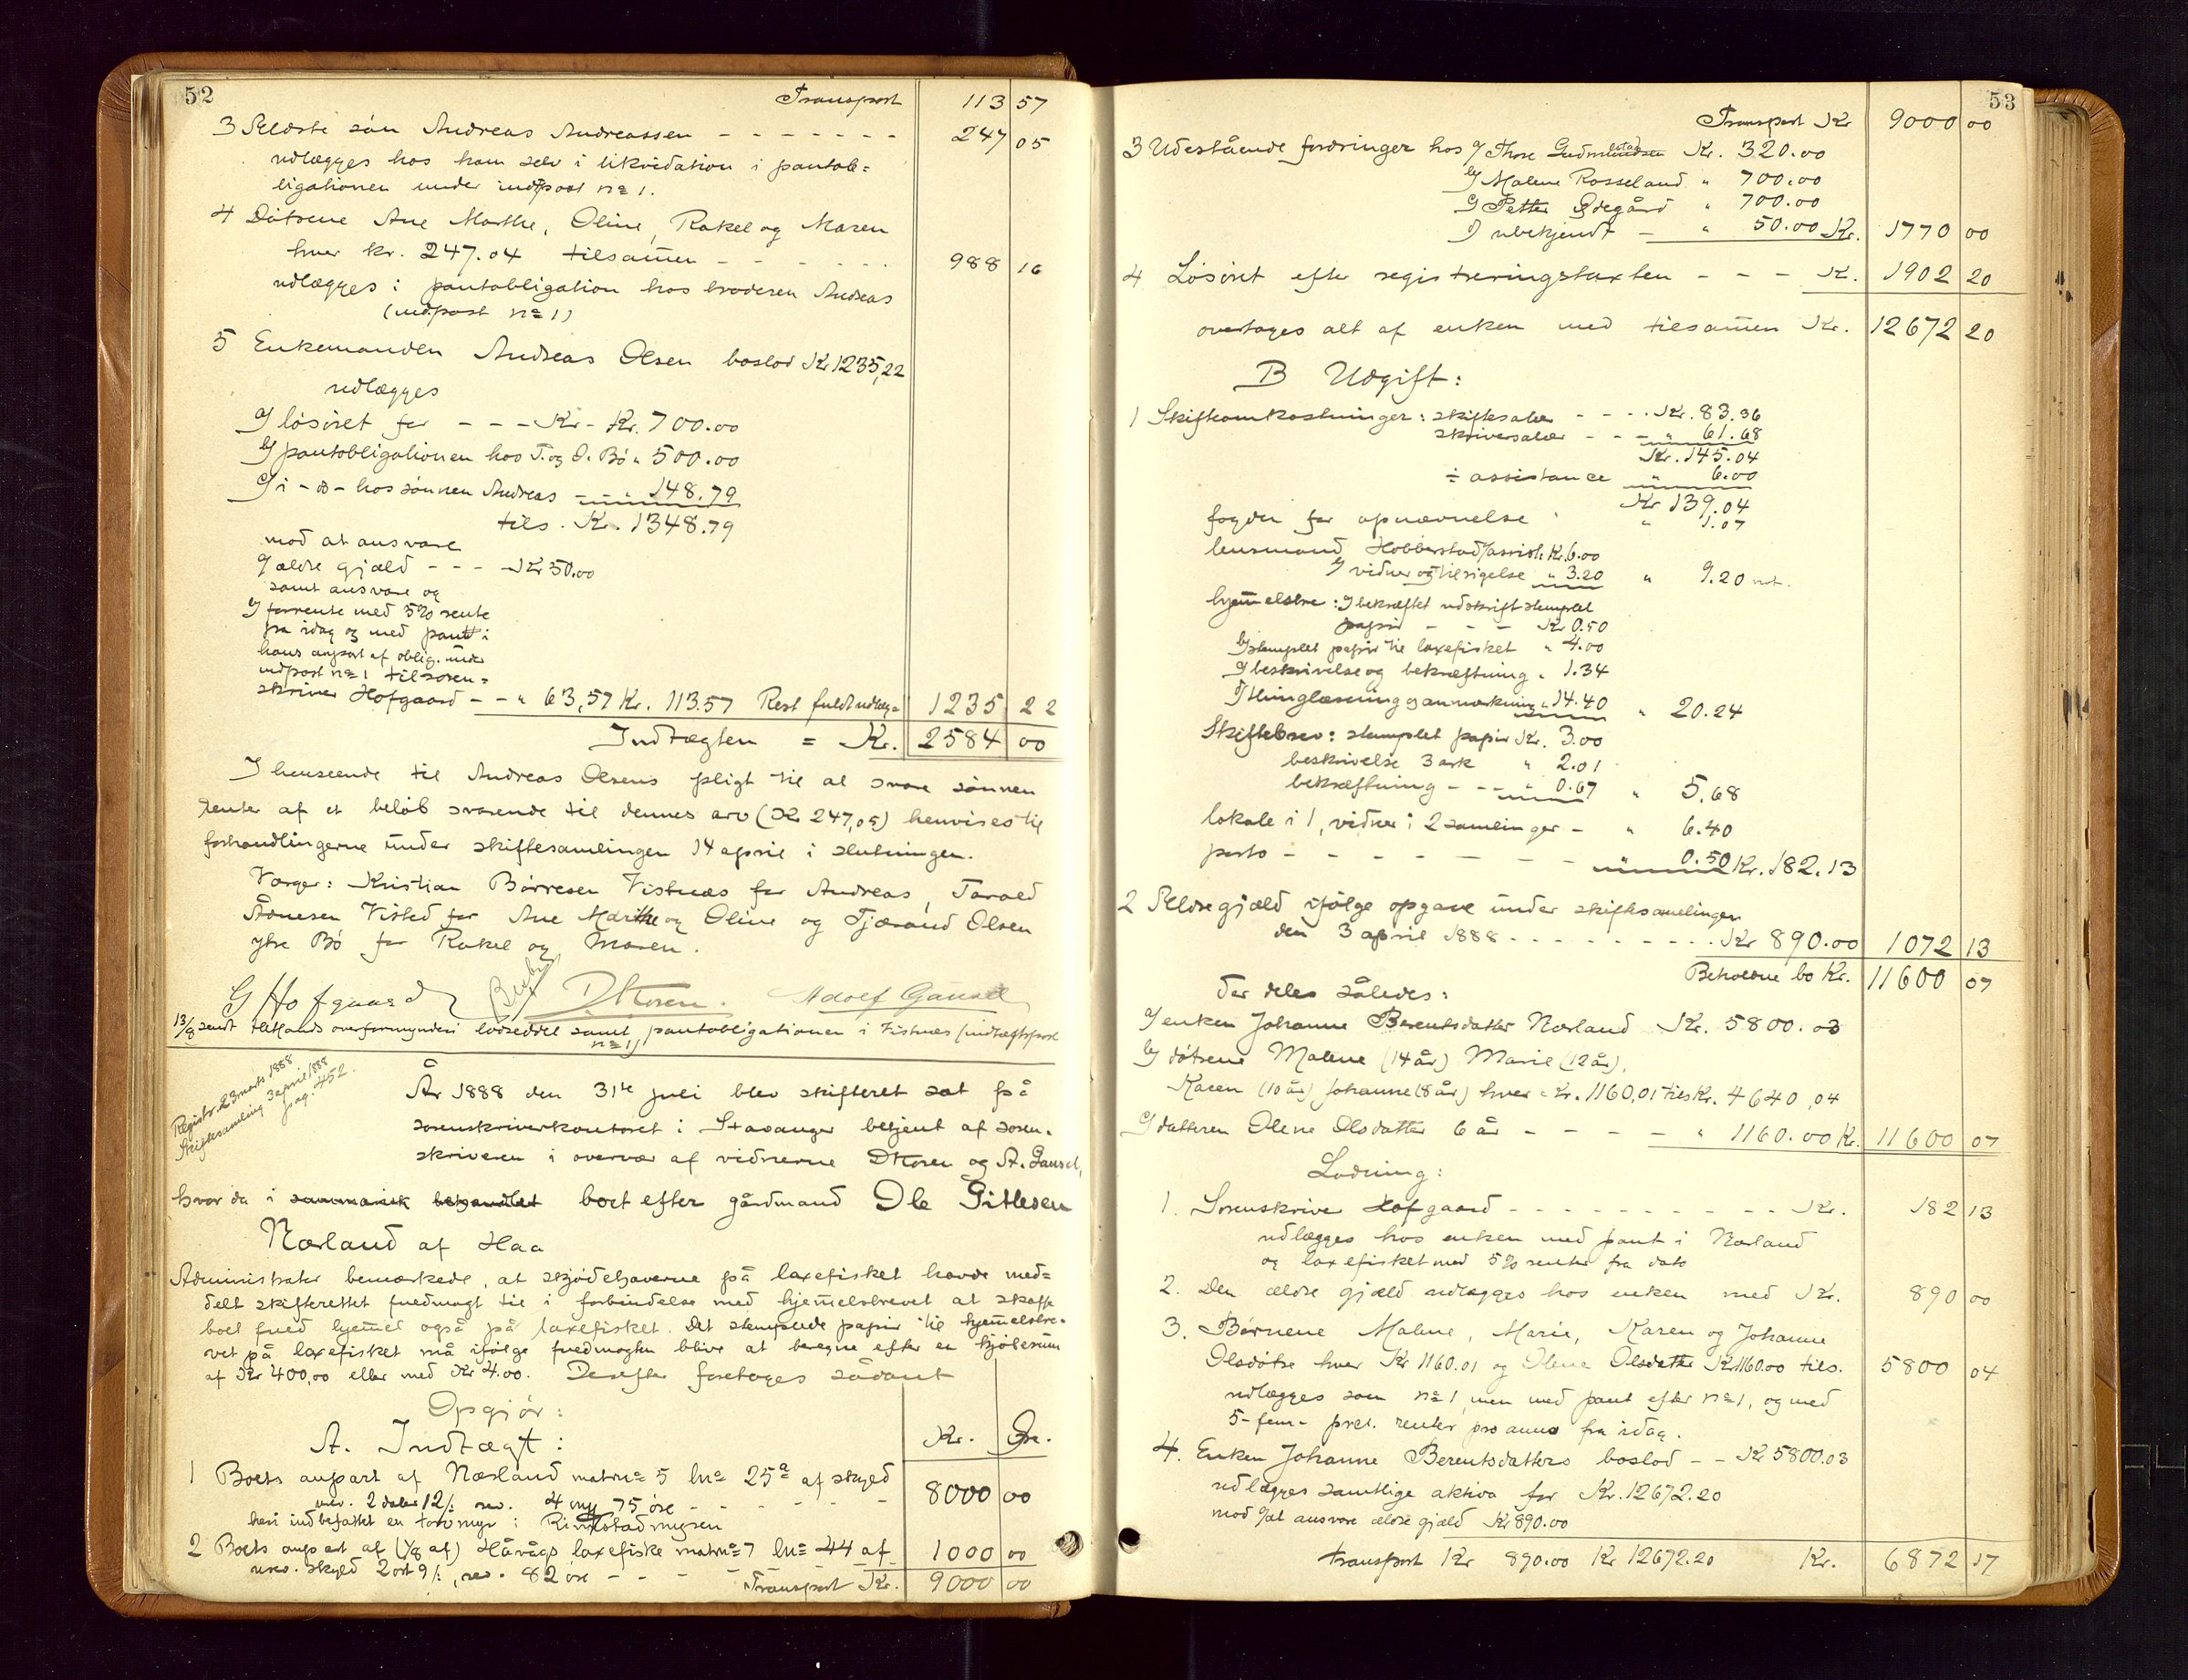 52
Transport 113 57
3 Ældste sön Andreas Andreassen - - - - - - - 247 05
udlægges hos ham selv i likvidation i pantob=
ligationen under indtpost no 1.
4 Dötrene Ane Marthe, Oline, Rakel og Maren
hver kr. 247.04 tilsamen - - - - - - 988 16
udlægges i pantobligation hos broderen Andreas
(indpost no 1)
5 Enkemanden Andreas Olsen boslod Kr 1235,22
udlægges
a/ lösöret for - - - Kr - Kr. 700.00
b/ pantobligationen hos T. og O. Bö " 500.00
c/ i - do - hos sönnen Andreas - - " 148.79
tils. Kr. 1348.79
mod at ansvare
a/ ældre gjæld - - - Kr 50.00
samt ansvare og
b/ forrente med 5% rente
fra idag og med pant i
hans anpart af oblig. under
indpost no 1 til soren=
skriver Hofgaard - - " 63,57 Kr. 113.57 Rest fuldt udlæg = 1235 22
Indtægten = Kr. 2584 00
I henseende til Andreas Olsens pligt til at svare sönnen
renter af et belöb svarende til dennes arv (Kr 247,05) henvises til
forhandlingerne under skiftesamlingen 14 april i slutningen.
Værger: Kristian Börresen Vistnæs for Andreas, Tarald
Ånensen Visted for Ane Marthe og Oline og Tjærand Olsen
ytre Bö for Rakel og Maren.
G Hofgaard DKoren. Adolf Gausel
13/8 sendt Hetlands overformynderi lodseddel samt pantobligationen i Vistnæs (indtægtspost
no 1)
Registr. 23 marts 1888
Skiftesamling 3 april 1888
pag. 452.
År 1888 den 31te juli blev skifteret sat på
sorenskriverkontoret i Stavanger betjent af soren=
skriveren i overvær af vidnerne DKoren og A. Gausel,
hvor da i summarisk behandlet boet efter gårdmand Ole Gitlesen
Nærland af Haa
Administrator bemærkede, at skjödehaverne på laxefisket havde med=
delt skifteretten fuldmagt til i forbindelse med hjemelsbrevet at skaffe
boet fuld hjemel også på laxefisket. Det stemplede papir til hjemelsbre=
vet på laxefisket må ifölge fuldmagten blive at beregne efter en kjöbesum
af Kr 400,00 eller med Kr 4.00. Derefter foretoges sådant
Opgjör:
A. Indtægt: Kr. Öre.
1 Boets anpart af Nærland matrno 5 lno 25a af skyld
urev. 2 daler 12 /: rev. 4 my 75 öre - - - - - - 8000 00
heri indbefattet en torvmyr i Ringstadmyren
2 Boets anpart af (1/8 af) Håvågs laxefiske matrno 7 lno 44 af 1000 00
urev. skyld 2 ort 9 /:, rev. 82 öre - - - -
Transport Kr. 9000 00
53
Transport Kr 9000 00
3 Udestående fordringer hos a/ Thore Gudmundsen Kr. 320.00
b/ Malene Rosseland " 700.00
c/ Petter Ödegård " 700.00
d/ ubekjendt - " 50.00 Kr. 1770 00
4 Lösöret efter registreringstaxten - - - K. 1902 20
overtages alt af enken med tilsamen Kr. 12672 20
B Udgift:
1 Skifteomkostninger: skiftesalær - - - - Kr. 83.36
skriversalær - - - " 61.68
Kr. 145.04
÷ assistance " 6.00
Kr 139.04
fogden for opnævnelse " 1.07
lensmand Hobberstad / assist. Kr. 6.00
b/ vidner og tilsigelse " 3.20 " 9.20
hjemelsbre: a/ bekræftet udskrift stemplet
papir - - - Kr 0.50
b/ stemplet papir til laxefisket " 4.00
c/ beskrivelse og bekræftning " 1.34
d/ thinglæsning og anmærkning " 14.40 " 20.24
Skiftebrev: stemplet papir Kr. 3.00
beskrivelse 3 ark " 2.01
bekræftning - - - " 0.67 " 5.68
lokale i 1, vidner i 2 samlinger - " 6.40
porto - - - - - - - " 0.50 Kr. 182.13
2 Ældre gjæld ifölge opgave under skiftesamlingen
den 3 april 1888 - - - - - - - - - - Kr 890.00 1072 13
Beholdne bo Kr. 11600 07
der deles således:
a/ enken Johanne Berentsdatter Nærland Kr. 5800.03
b/ dötrene Malene (14 år) Marie (12 år),
Karen (10 år) Johanne (8 år) hver " Kr. 1160,01 tils Kr. 4640,04
c/ datteren Olene Olsdatter 6 år - - - - " 1160.00 Kr. 11600 07
Lodning:
1. Sorenskriver Hofgaard - - - - - - - - - - Kr. 182 13
udlægges hos enken med pant i Nærland
og laxefisket med 5% renter fra dato
2. Den ældre gjæld udlægges hos enken med Kr. 890 00
3. Börnene Malene, Marie, Karen og Johanne
Olsdötre hver Kr 1160.01 og Olene Olsdatter Kr 1160.00 tils. 5800 04
udlægges som no 1, men med pant efter no 1, og med
5 - fem - prct. renter pro anno fra idag.
4. Enken Johanne Berentsdatters boslod - - Kr 5800.03
udlægges samtlige aktiva for Kr. 12672.20
mod a/ at ansvare ældre gjæld Kr 890.00
transport Kr 890.00 Kr 12672.20 Kr. 6872 17